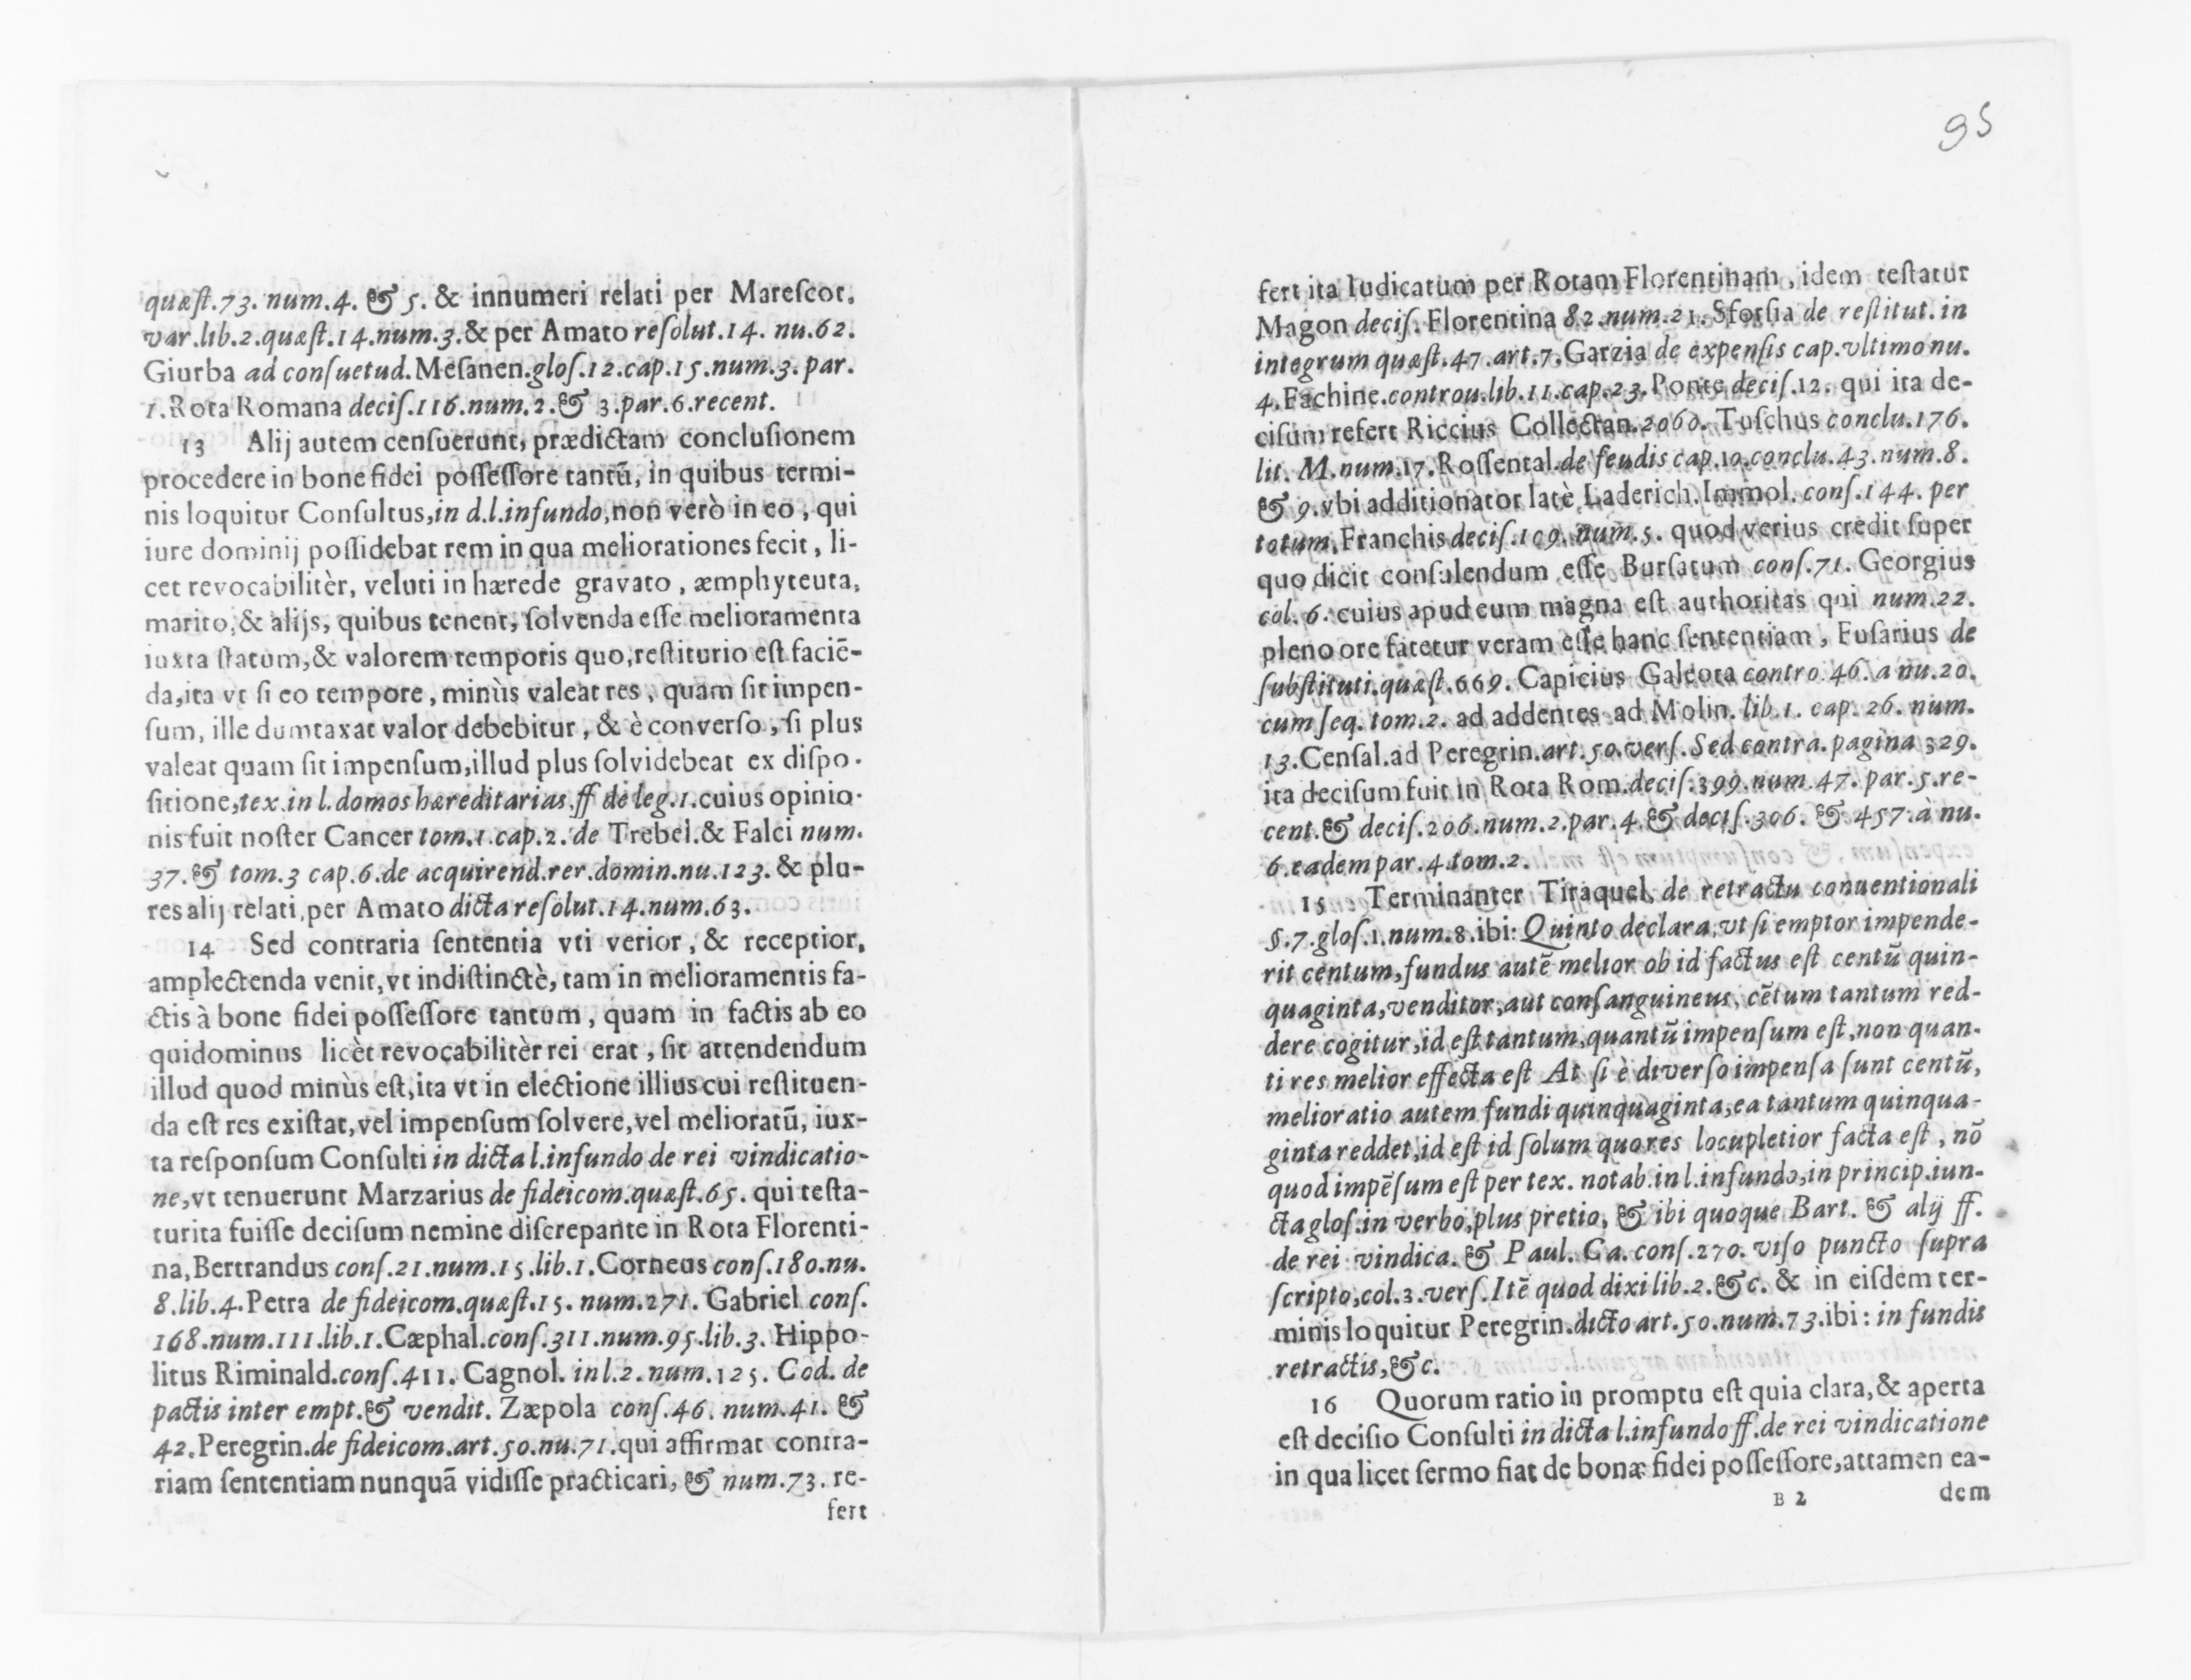 quæſt.73. num.4. & 5. & innumeri relati per Mareſcot.
var.lib.2.quæſt.14.num.3.& per Amato reſolut.14. nu.62.
Giurba ad conſuetud.Meſanen.gloſ.12.cap.15.num.3.par.
1.Rota Romana deciſ.116.num.2.& 3.par.6.recent.
13 Alij autem cenſuerunt, prædictam concluſionem
procedere in bone fidei poſſeſſore tantū, in quibus termi-
nis loquitur Conſultus,in d.l.infundo,non verò in eo, qui
iure dominij poſſidebat rem in qua meliorationes fecit, li-
cet revocabilitèr, veluti in hærede gravato, æmphyteuta,
marito,& alijs, quibus tenent, ſolvenda eſſe melioramenta
iuxta ſtatum,& valorem temporis quo,reſtitutio eſt faciē-
da,ita vt ſi eo tempore, minùs valeat res, quam ſit impen-
ſum, ille dumtaxat valor debebitur, & è converſo, ſi plus
valeat quam ſit impenſum,illud plus ſolvidebeat ex diſpo-
ſitione,tex.in l.domos hæreditarias.ff de leg.1.cuius opinio-
nis fuit noſter Cancer tom.1.cap.2.de Trebel.& Falci num.
37.& tom.3 cap.6.de acquirend.rer.domin.nu.123.& plu-
res alij relati,per Amato dicta reſolut.14.num.63.
14 Sed contraria ſententia vti verior, & receptior,
amplectenda venit,vt indiſtinctè, tam in melioramentis fa-
ctis à bone fidei poſſeſſore tantum, quam in factis ab eo
quidominus licèt revocabilitèr rei erat, ſit attendendum
illud quod minùs eſt,ita vt in electione illius cui reſtituen-
da eſt res exiſtat,vel impenſum ſolvere,vel melioratū, iux-
ta reſponſum Conſulti in dicta l.infundo de rei vindicatio-
ne,vt tenuerunt Marzarius de fideicom.quæſt.65. qui teſta-
turita fuiſſe deciſum nemine diſcrepante in Rota Florenti-
na,Bertrandus conſ.21.num.15.lib.1.Corneus conſ.180.nu.
8.lib.4.Petra de fideicom.quæſt.15. num.271. Gabriel conſ.
168.num.111.lib.1.Cæphal.conſ.311.num.95.lib.3. Hippo-
litus Riminald.conſ.411. Cagnol. in l.2.num.125. Cod. de
pactis inter empt.& vendit. Zæpola conſ.46. num.41. &
42.Peregrin.de fideicom.art.50.nu.71.qui affirmat contra-
riam ſententiam nunquā vidiſſe practicari, & num.73. re-
fert
95
fert ita Iudicatum per Rotam Florentinam, idem teſtatur
Magon deciſ. Florentina 82.num.21. Sforſia de reſtitut. in
integrum quæſt.47.art.7.Garzia de expenſis cap.vltimo nu.
4.Fachine.controu.lib.11.cap.23.Ponte deciſ.12. qui ita de-
ciſum refert Riccius Collectan.2060. Tuſchus conclu.176.
lit. M.num.17.Roſſental.de feudis cap.10.conclu.43.num.8.
& 9.vbi additionator latè Laderich.Immol. conſ.144. per
totum,Franchis deciſ.109.num.5. quod verius credit ſuper
quo dicit conſulendum eſſe Burſatum conſ.71. Georgius
col. 6. cuius apud eum magna eſt authoritas qui num.22.
pleno ore fatetur veram eſſe hanc ſententiam, Fuſarius de
ſubſtituti.quæſt.669. Capicius Galeota contro.46. a nu.20.
cum ſeq. tom.2. ad addentes ad Molin. lib.1. cap. 26. num.
13.Cenſal.ad Peregrin.art.50.verſ.Sed contra.pagina 329.
ita deciſum fuit in Rota Rom.deciſ.399.num.47. par.5.re-
cent.& deciſ.206.num.2.par.4.& deciſ.306. & 457.à nu.
6.eadem par.4.tom.2.
15 Terminanter Tiraquel, de retractu conuentionali
§.7.gloſ.1.num.8.ibi: Quinto declara,vt ſi emptor impende-
rit centum,fundus autē melior ob id factus eſt centū quin-
quaginta,venditor,aut conſanguineus, cētum tantum red-
dere cogitur,id eſt tantum,quantū impenſum eſt,non quan-
ti res melior effecta eſt At ſi è diverſo impenſa ſunt centū,
melioratio autem fundi quinquaginta,ea tantum quinqua-
ginta reddet,id eſt id ſolum quo res locupletior facta eſt, nō
quod impēſum eſt per tex. notab.in l.infundo,in princip.iun-
cta gloſ.in verbo,plus pretio, & ibi quoque Bart. & alij ff.
de rei vindica. & Paul. Ca. conſ.270. viſo puncto ſupra
ſcripto,col.3.verſ.Itē quod dixi lib.2.&c. & in eiſdem ter-
minis loquitur Peregrin.dicto art.50.num.73.ibi: in fundis
retractis,&c.
16 Quorum ratio in promptu eſt quia clara,& aperta
eſt deciſio Conſulti in dicta l.infundo ff.de rei vindicatione
in qua licet ſermo fiat de bonæ fidei poſſeſſore,attamen ea-
B 2
dem